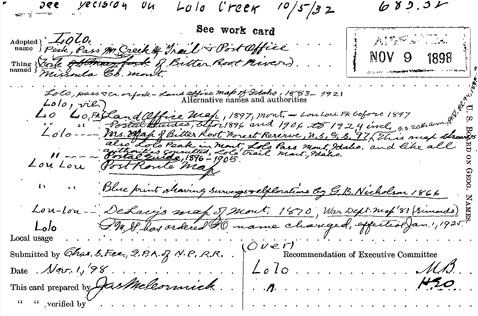 See decision on Lolo Creek 10/5/32 683.32
See work card
Adopted name } Lolo.
Peak, Pass Creek & Trail & Post Office
Thing named } (Fork of of Bitter Root River)
Missoula Co. Mont.
NOV 9 1898
Lolo, pass or fork - Land office map of Idaho, 1883-1921
Alternative names and authorities
Lolo, vil.
Lo Lo, Land Office Map, 1897, Mont - Lou Lou Pk before 1897
Postal Guides, 1896 and 1906 to 1924 incl.
Lolo Map of Bitter Root Forest Reserve, U.S.G.S. This map shows
also Lolo Peak in Mont, Lolo Pass Mont Idaho, and like all
authorities Lolo trail Mont, Idaho.
Postal Guide, 1896-1905
Lou Lou Post Route Map
" " Blue print showing surveys & explorations by G. B. Nicholson 1866
Lou-Lou DeLacy's map of Mont. 1870, War Dept. Map '81 (Symonds)
Lolo name changed, effective Jan. 1, 1925
Local usage
(Over)
Submitted by Chas. S. Fee, G.P.A. of N.P.R.R.
Recommendation of Executive Committee
Date Nov. 1, '98
Lolo M.B.
This card prepared by Jas McCormick
" H.G.O
" " verified by
U. S. BOARD ON GEOG. NAMES.